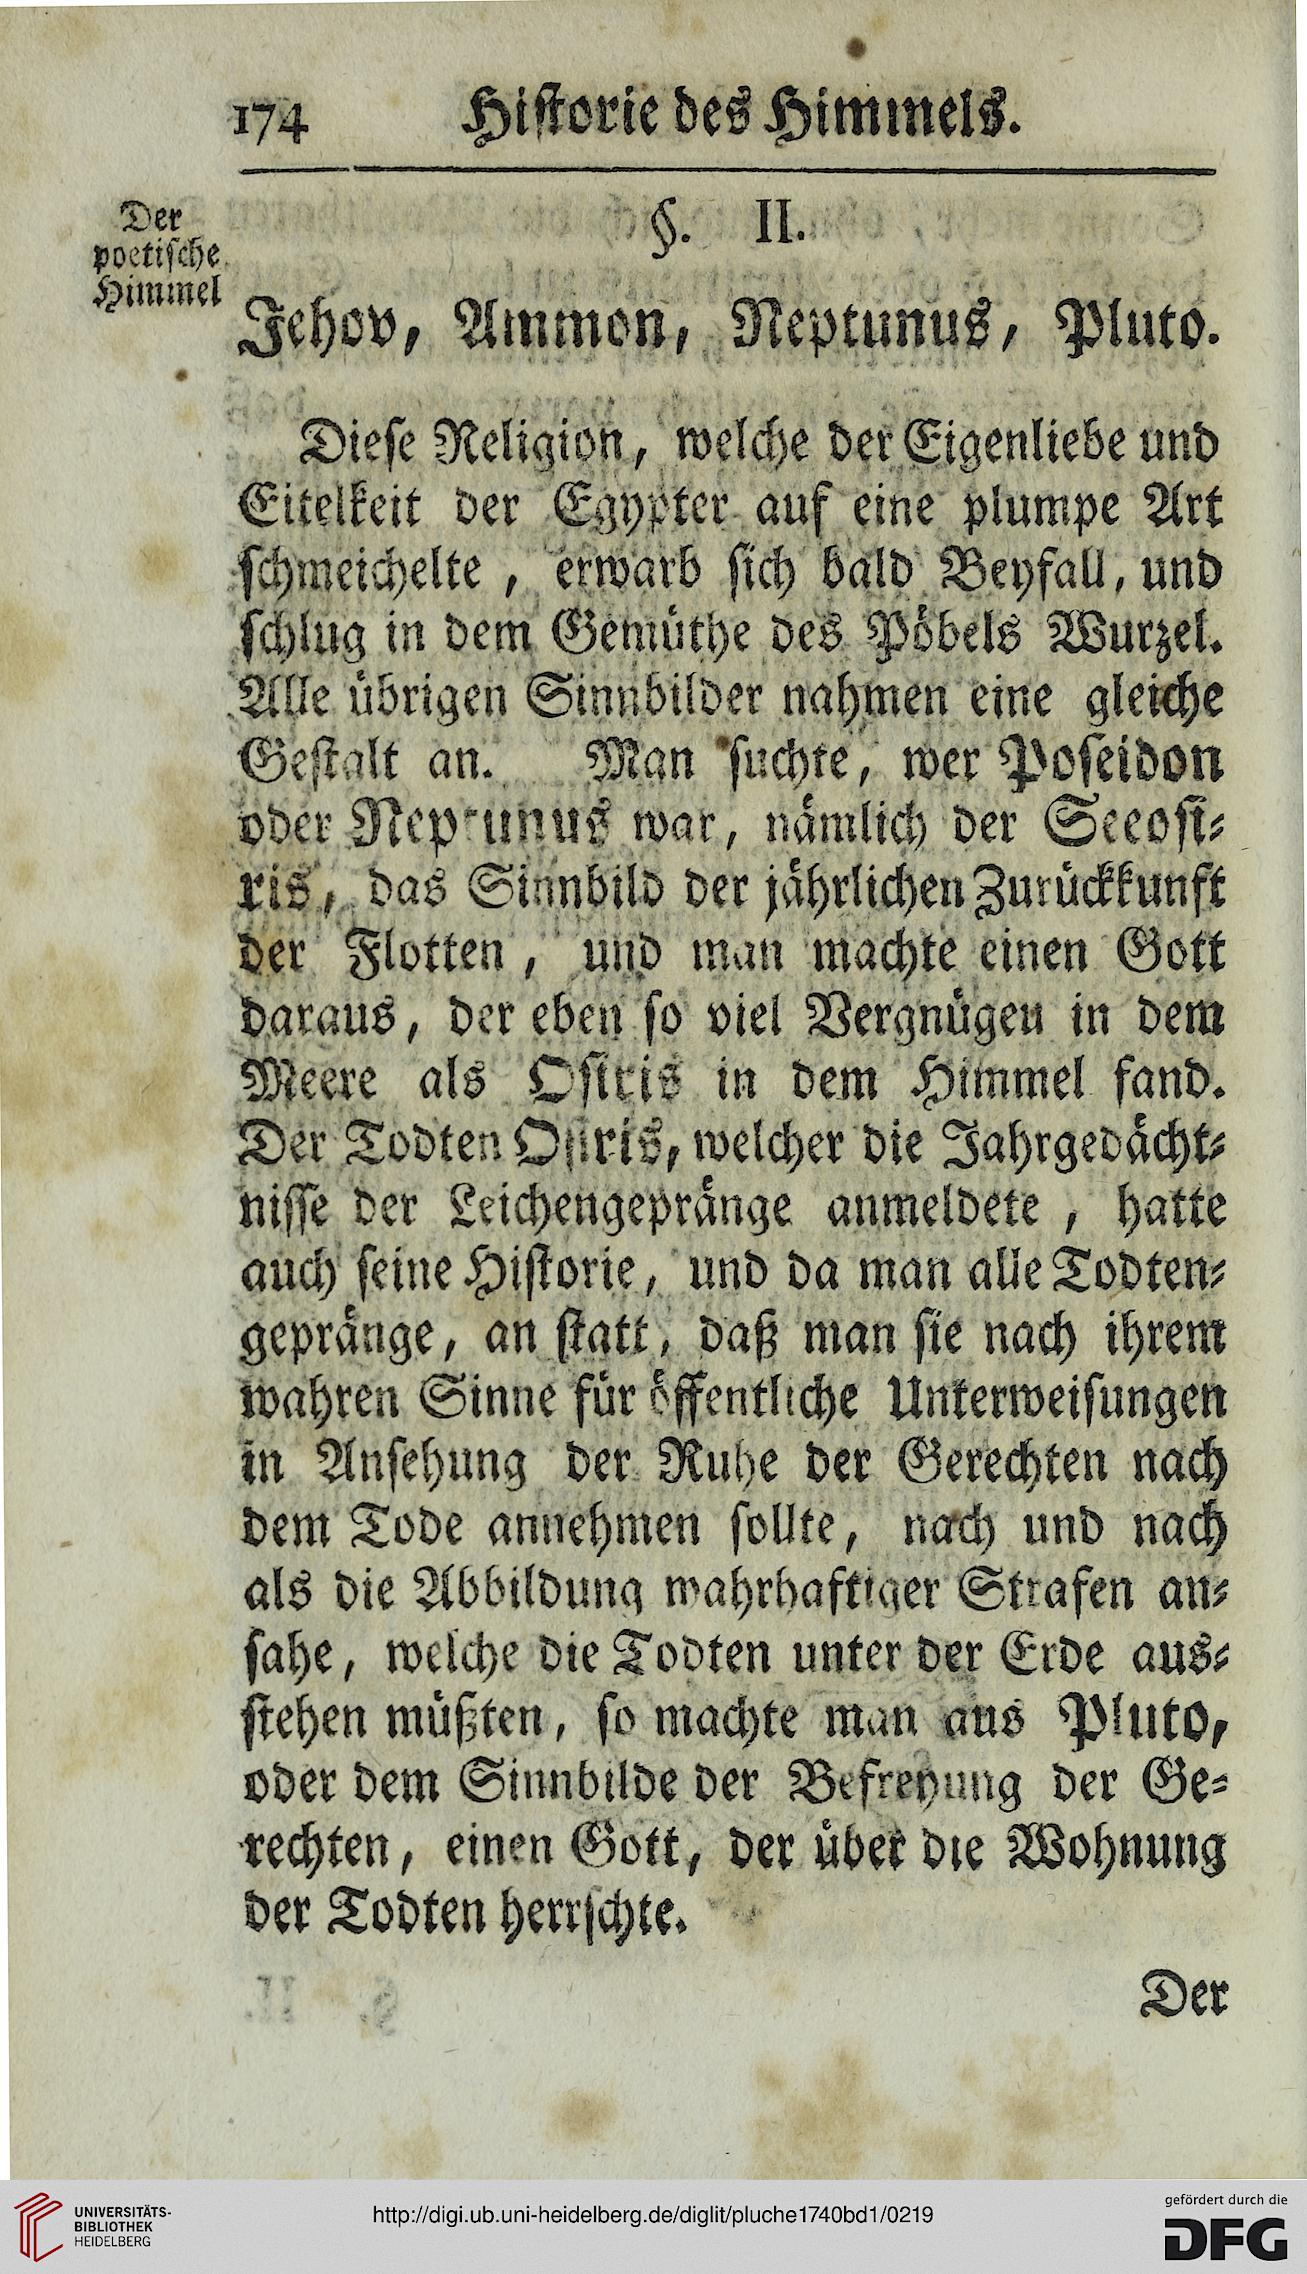 174 Historie des Himmels.
Der
poetische
Himmel
§. II.
Jehov, Ammon, Neptunus, Pluto.
Diese Religion, welche der Eigenliebe und
Eitelkeit der Egypter auf eine plumpe Art
schmeichelte, erwarb sich bald Beyfall, und
schlug in dem Gemüthe des Pöbels Wurzel.
Alle übrigen Sinnbilder nahmen eine gleiche
Gestalt an. Man suchte, wer Poseidon
oder Neptunus war, nämlich der Seeosi-
ris, das Sinnbild der jährlichen Zurückkunft
der Flotten, und man machte einen Gott
daraus, der eben so viel Vergnügen in dem
Meere als Osiris in dem Himmel fand.
Der Todten Osiris, welcher die Jahrgedächt-
nisse der Leichengepränge anmeldete, hatte
auch seine Historie, und da man alle Todten-
gepränge, an statt, daß man sie nach ihrem
wahren Sinne für öffentliche Unterweisungen
in Ansehung der Ruhe der Gerechten nach
dem Tode annehmen sollte, nach und nach
als die Abbildung wahrhaftiger Strafen an-
sahe, welche die Todten unter der Erde aus-
stehen müßten, so machte man aus Pluto,
oder dem Sinnbilde der Befreyung der Ge-
rechten, einen Gott, der über die Wohnung
der Todten herrschte.
Der
UNIVERSITÄTS-
BIBLIOTHEK
HEIDELBERG
http://digi.ub.uni-heidelberg.de/diglit/pluche1740bd1/0219
gefördert durch die
DFG